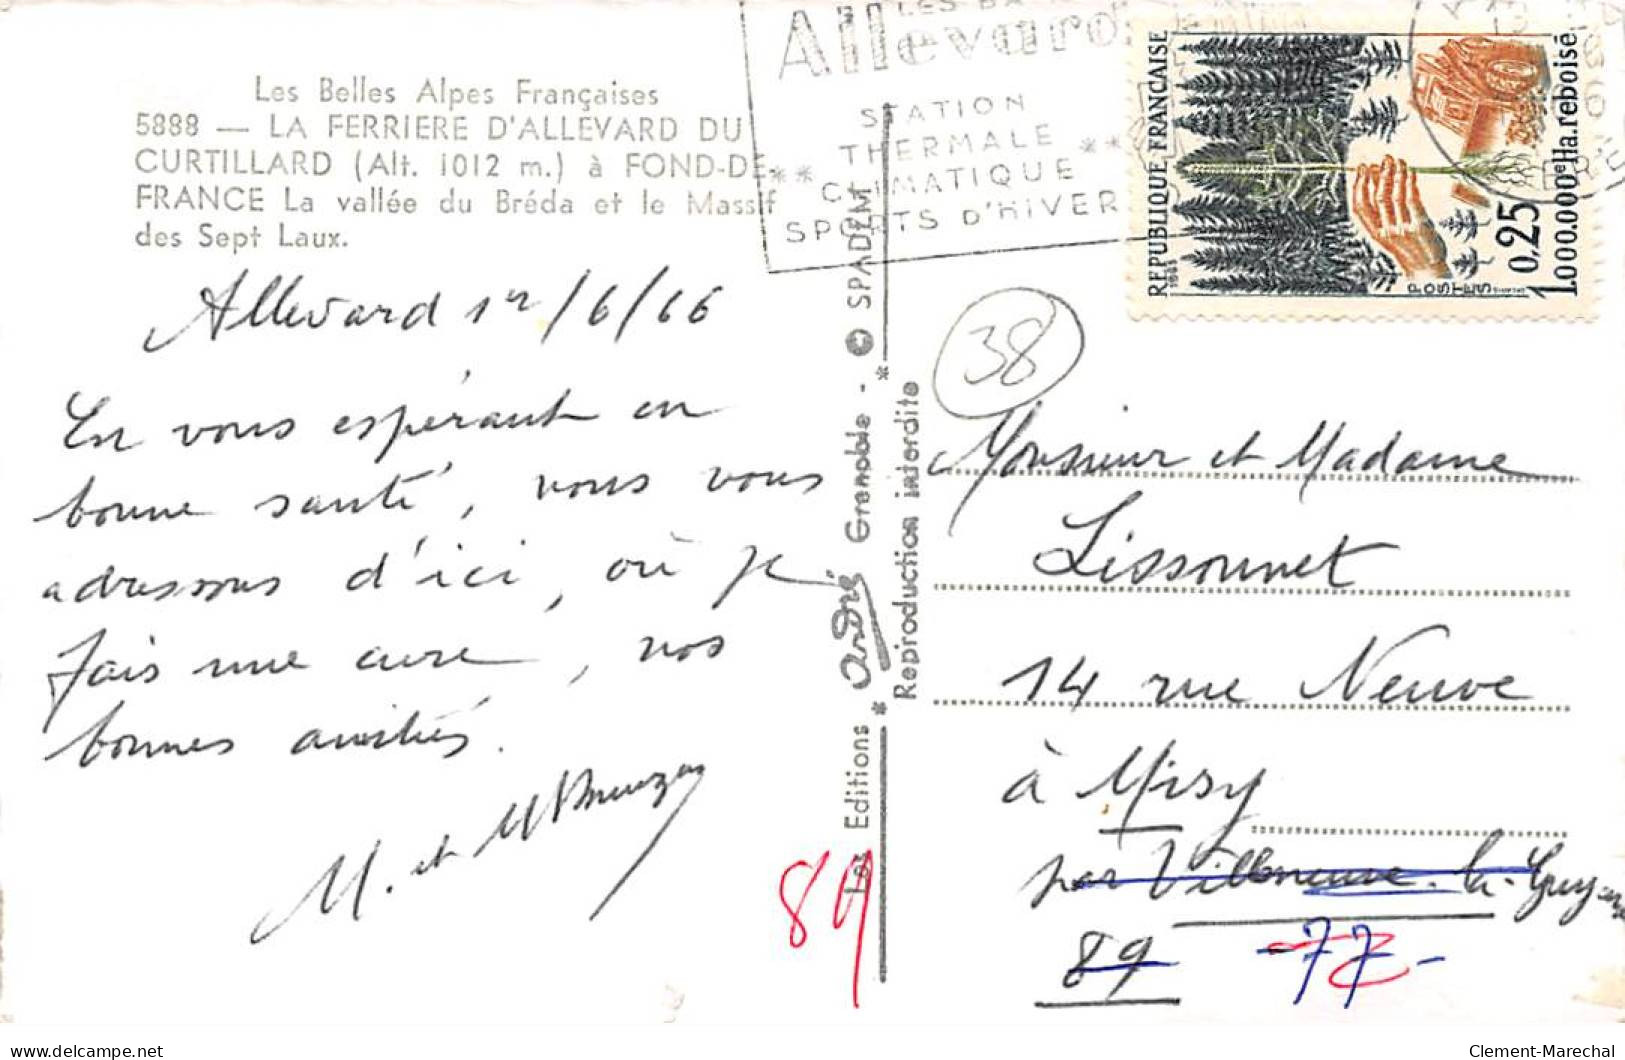 Les Belles Alpes Françaises
5888 — LA FERRIERE D'ALLEVARD DU
CURTILLARD (Alt. 1012 m.) à FOND-DE-
FRANCE La vallée du Bréda et le Massif
des Sept Laux.
Allevard 1er/6/66
En vous espérant en
bonne santé, nous vous
adressons d'ici, où je
fais une cure, nos
bonnes amitiés.
M. et Mme
89
Les Editions * André Grenoble - © SPADEM *
Reproduction interdite
Allevard
STATION
THERMALE
** CLIMATIQUE **
SPORTS D'HIVER
REPUBLIQUE FRANÇAISE
1965
POSTES
0,25
1.000.000e Ha. reboisé
38
Monsieur et Madame
Lissonnet
14 rue Neuve
à Misy
par Villeneuve-la-Guyard
89 -77-
Clement-Marechal